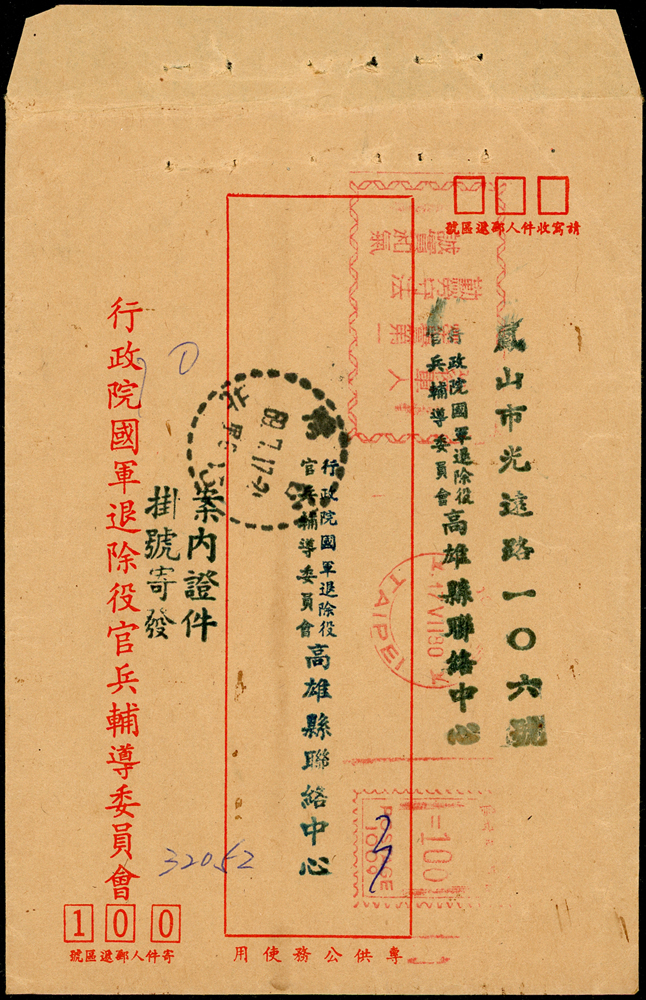 請寫收件人郵遞區號
鳳山市光遠路一〇六號
行政院國軍退除役
官兵輔導委員會
高雄縣聯絡中心
行政院國軍退除役
官兵輔導委員會
高雄縣聯絡中心
案內證件
掛號寄發
行政院國軍退除役官兵輔導委員會
32052
100
寄件人郵遞區號
專供公務使用
TAIPEI
17 VII 80
=100
POSTAGE